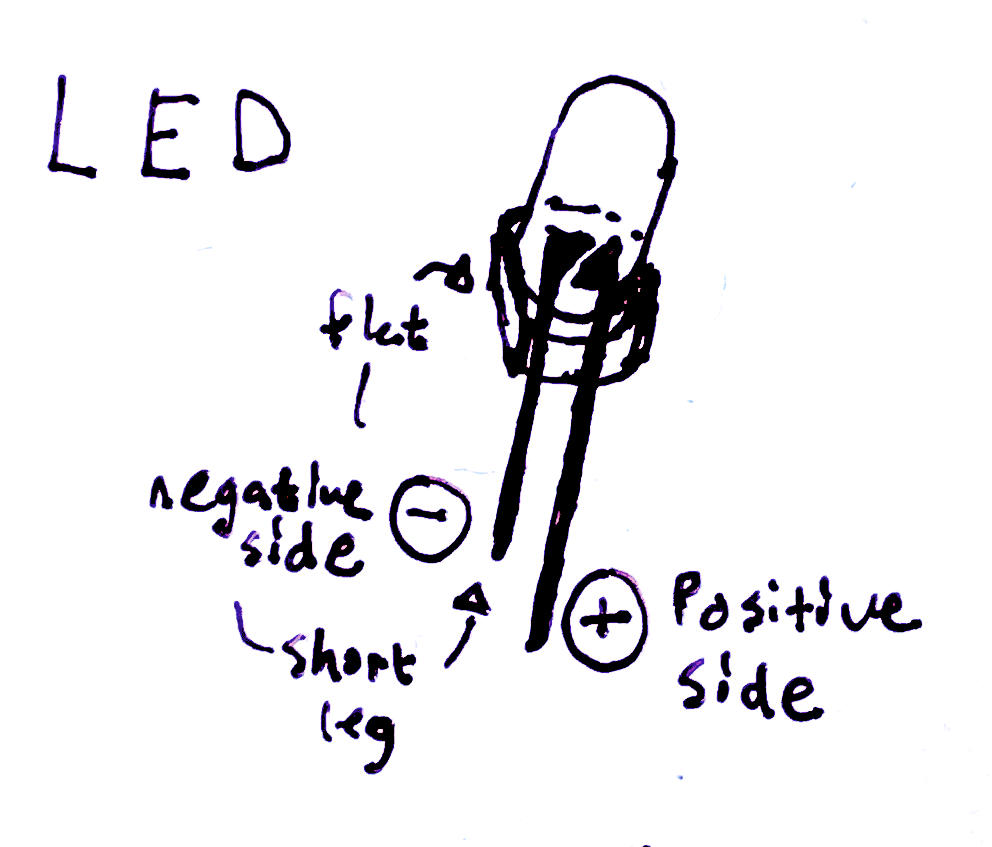 LED
flat
negative
side
−
short
leg
+
Positive
side